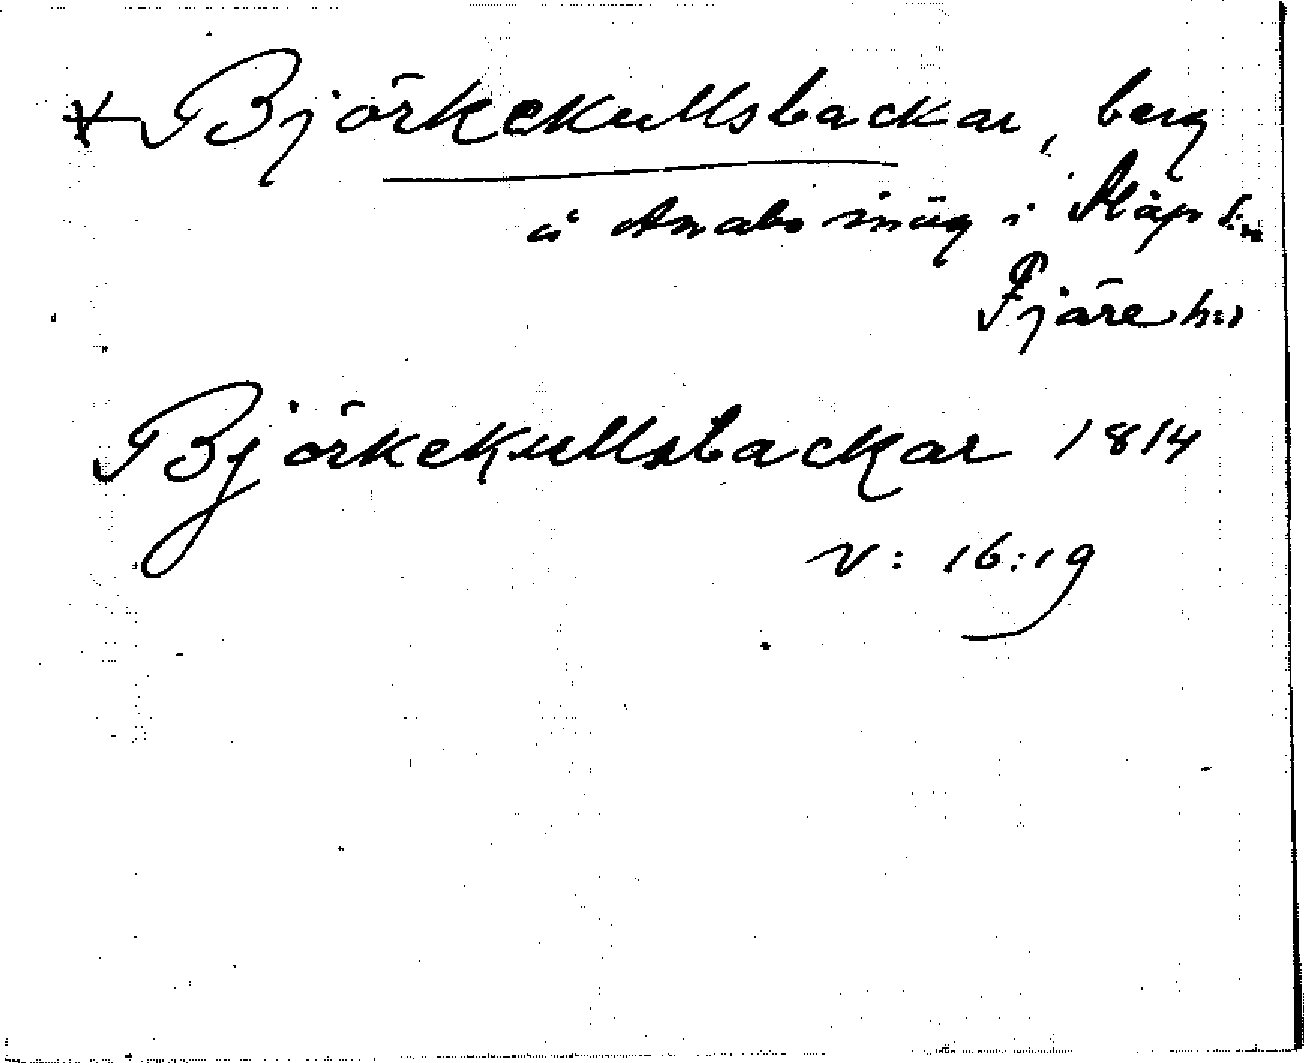 + Björkekullsbackar, berg
å Arabo inäg i Släps sn
Fjäre hd
Björkekullsbackar 1814
V: 16:19